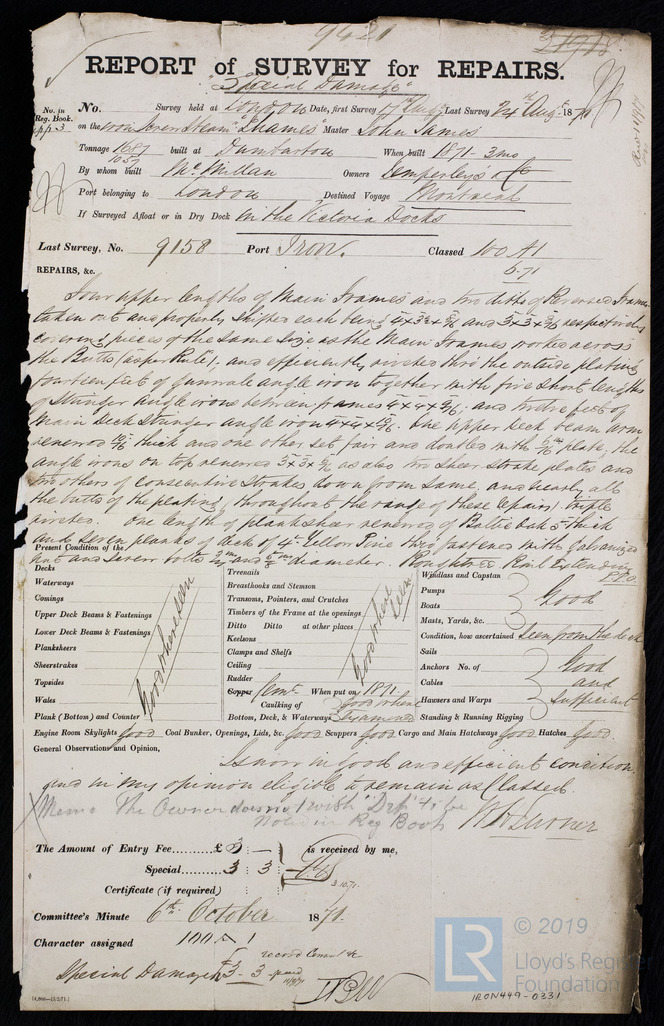 9421
REPORT of SURVEY for REPAIRS.
"Special Damage"
No. in Reg. Book.
No. Survey held at London Date, first Survey 17th Augt Last Survey 24th Augt 1871
on the Iron Screw Steam "Thames" Master John James
Tonnage 1687 built at Dumbarton When built 1871 3mo
1057
By whom built McMillan Owners Temperleys & Co
Port belonging to London Destined Voyage Montreal
If Surveyed Afloat or in Dry Dock In the Victoria Docks
Last Survey, No. 9158 Port Iron. Classed 100 A1
5.71
REPAIRS, &c.
Four upper lengths of Main Frames and two ditto of Reversed Frames
taken out and properly shifted each being and respectively
covering pieces of the same size as the Main Frames worked across
the Butts (as per Rule); and efficiently riveted thro' the outside plating
fourteen feet of gunwale angle iron together with five short lengths
of Stringer angle irons between frames 4 x 4 x and twelve feet of
Main Deck Stringer angle iron 4 x 4 x. One upper deck beam arm
renewed 10/16 thick and one other set fair and doubled with plate, the
angle irons on top renewed 3 x 3 x as also two Sheer Strake plates and
two others of consecutive strakes down from same, and nearly all
the butts of the plating, throughout the range of these repairs, triple
riveted. One length of planksheer renewed of Baltic Oak 5" thick
and seven planks of deck of 4" Yellow Pine thro fastened with Galvanized
nut and screw bolts and diameter. Roughtree Rail Extending
P.T.O.
Present Condition of the
Decks
Waterways
Comings
Upper Deck Beams & Fastenings
Lower Deck Beams & Fastenings
Planksheers
Sheerstrakes
Topsides
Wales
Plank (Bottom) and Counter
Good where seen
Treenails
Breasthooks and Stemson
Transoms, Pointers, and Crutches
Timbers of the Frame at the openings
Ditto Ditto at other places
Keelsons
Clamps and Shelfs
Ceiling
Rudder
Good where seen
Copper Cemt. When put on 1871.
Caulking of Bottom, Deck, & Waterways Good where Examined
Windlass and Capstan
Pumps
Boats
Masts, Yards, &c.
Good
Condition, how ascertained Seen from the deck
Sails
Anchors No. of
Cables
Hawsers and Warps
Standing & Running Rigging
Good and Sufficient
Engine Room Skylights Good Coal Bunker, Openings, Lids, &c. Good Scuppers Good Cargo and Main Hatchways Good Hatches Good.
General Observations and Opinion,
Is now in good and efficient condition
and in my opinion eligible to remain as Classed.
Memo The Owner does not wish "Drp" to be
Noted in Reg Book
The Amount of Entry Fee......... £ is received by me,
Special......... 3 : 3 :
3.10.71.
Certificate (if required)
Committee's Minute 6th October 1871.
Character assigned 100 A 1
Special Damage Fs 3 - 3 - paid
IRON449-0331
LR © 2019
Lloyd's Register
Foundation